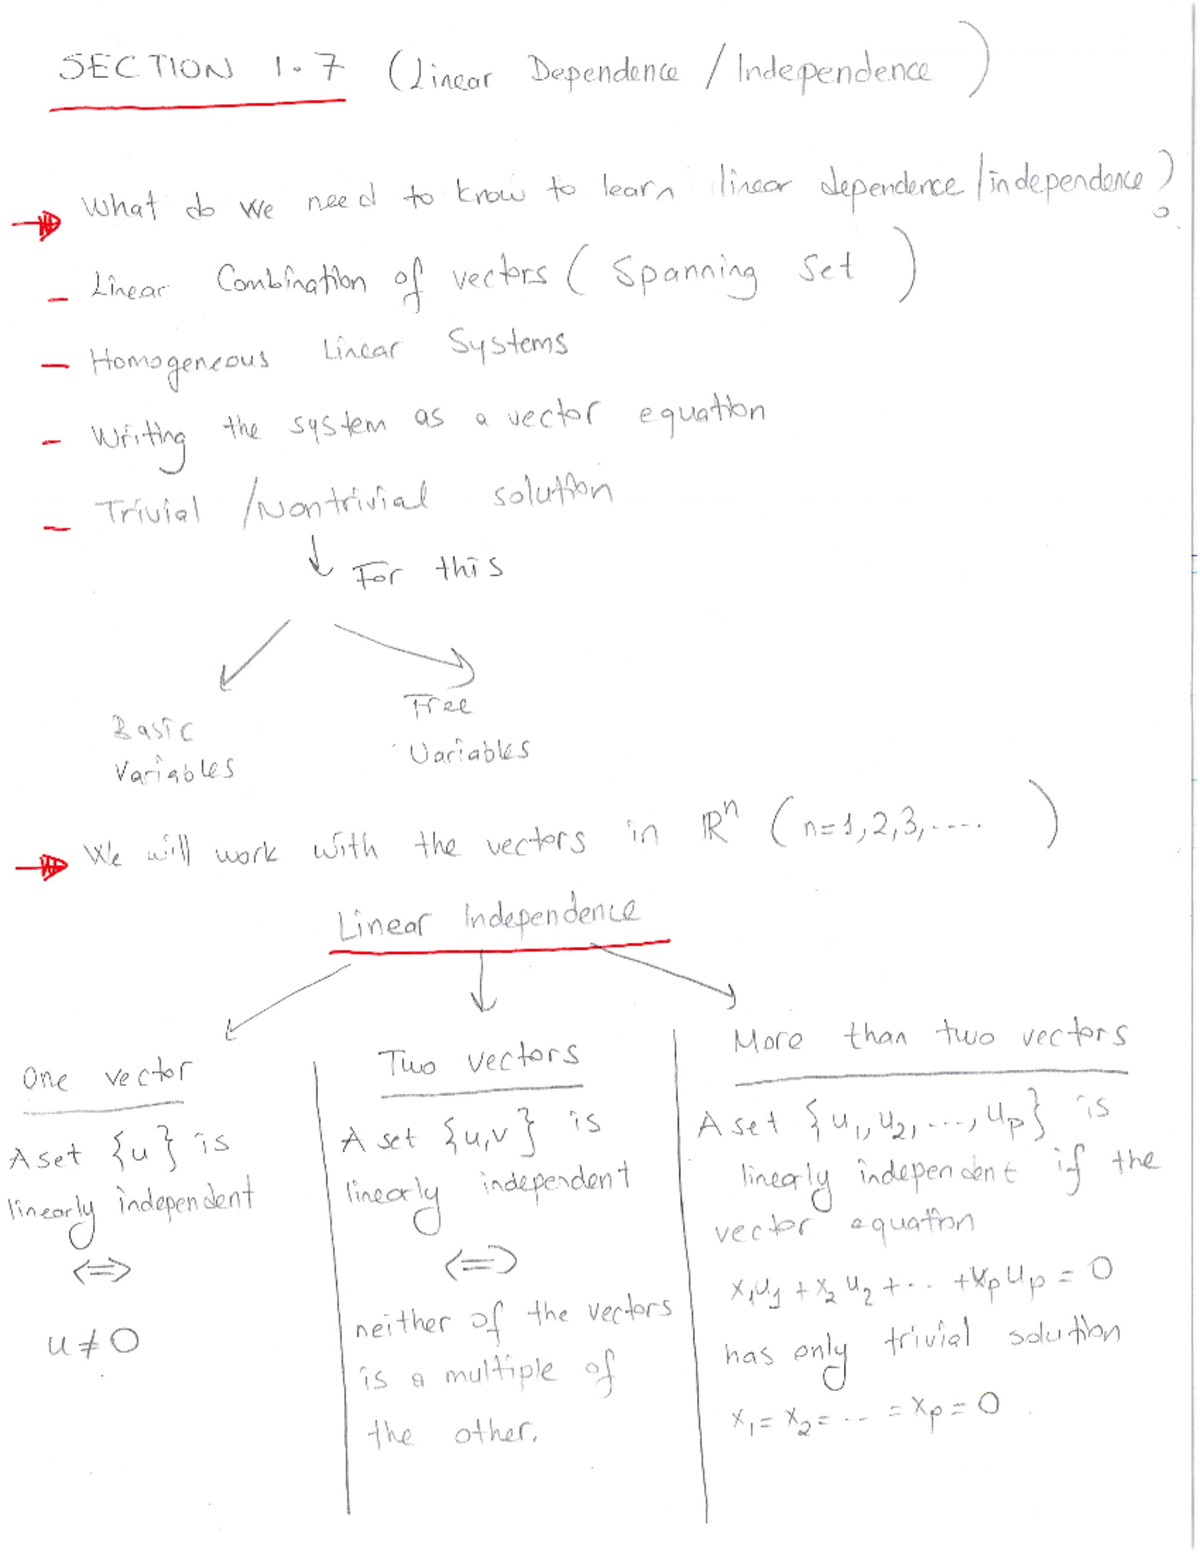 SECTION 1.7 (Linear Dependence / Independence)
What do we need to know to learn linear dependence/independence?
- Linear Combination of vectors (Spanning Set)
- Homogeneous Linear Systems
- Writing the system as a vector equation
- Trivial /Nontrivial solution
↓ For this
Basic
Variables
Free
Variables
We will work with the vectors in ℝⁿ (n=1,2,3,....)
Linear Independence
One vector
A set {u} is
linearly independent
<=>
u≠0
Two vectors
A set {u,v} is
linearly independent
<=>
neither of the vectors
is a multiple of
the other.
More than two vectors
A set {u₁,u₂,...,uₚ} is
linearly independent if the
vector equation
x₁u₁ + x₂u₂ + ... + xₚuₚ = 0
has only trivial solution
x₁ = x₂ = ... = xₚ = 0.